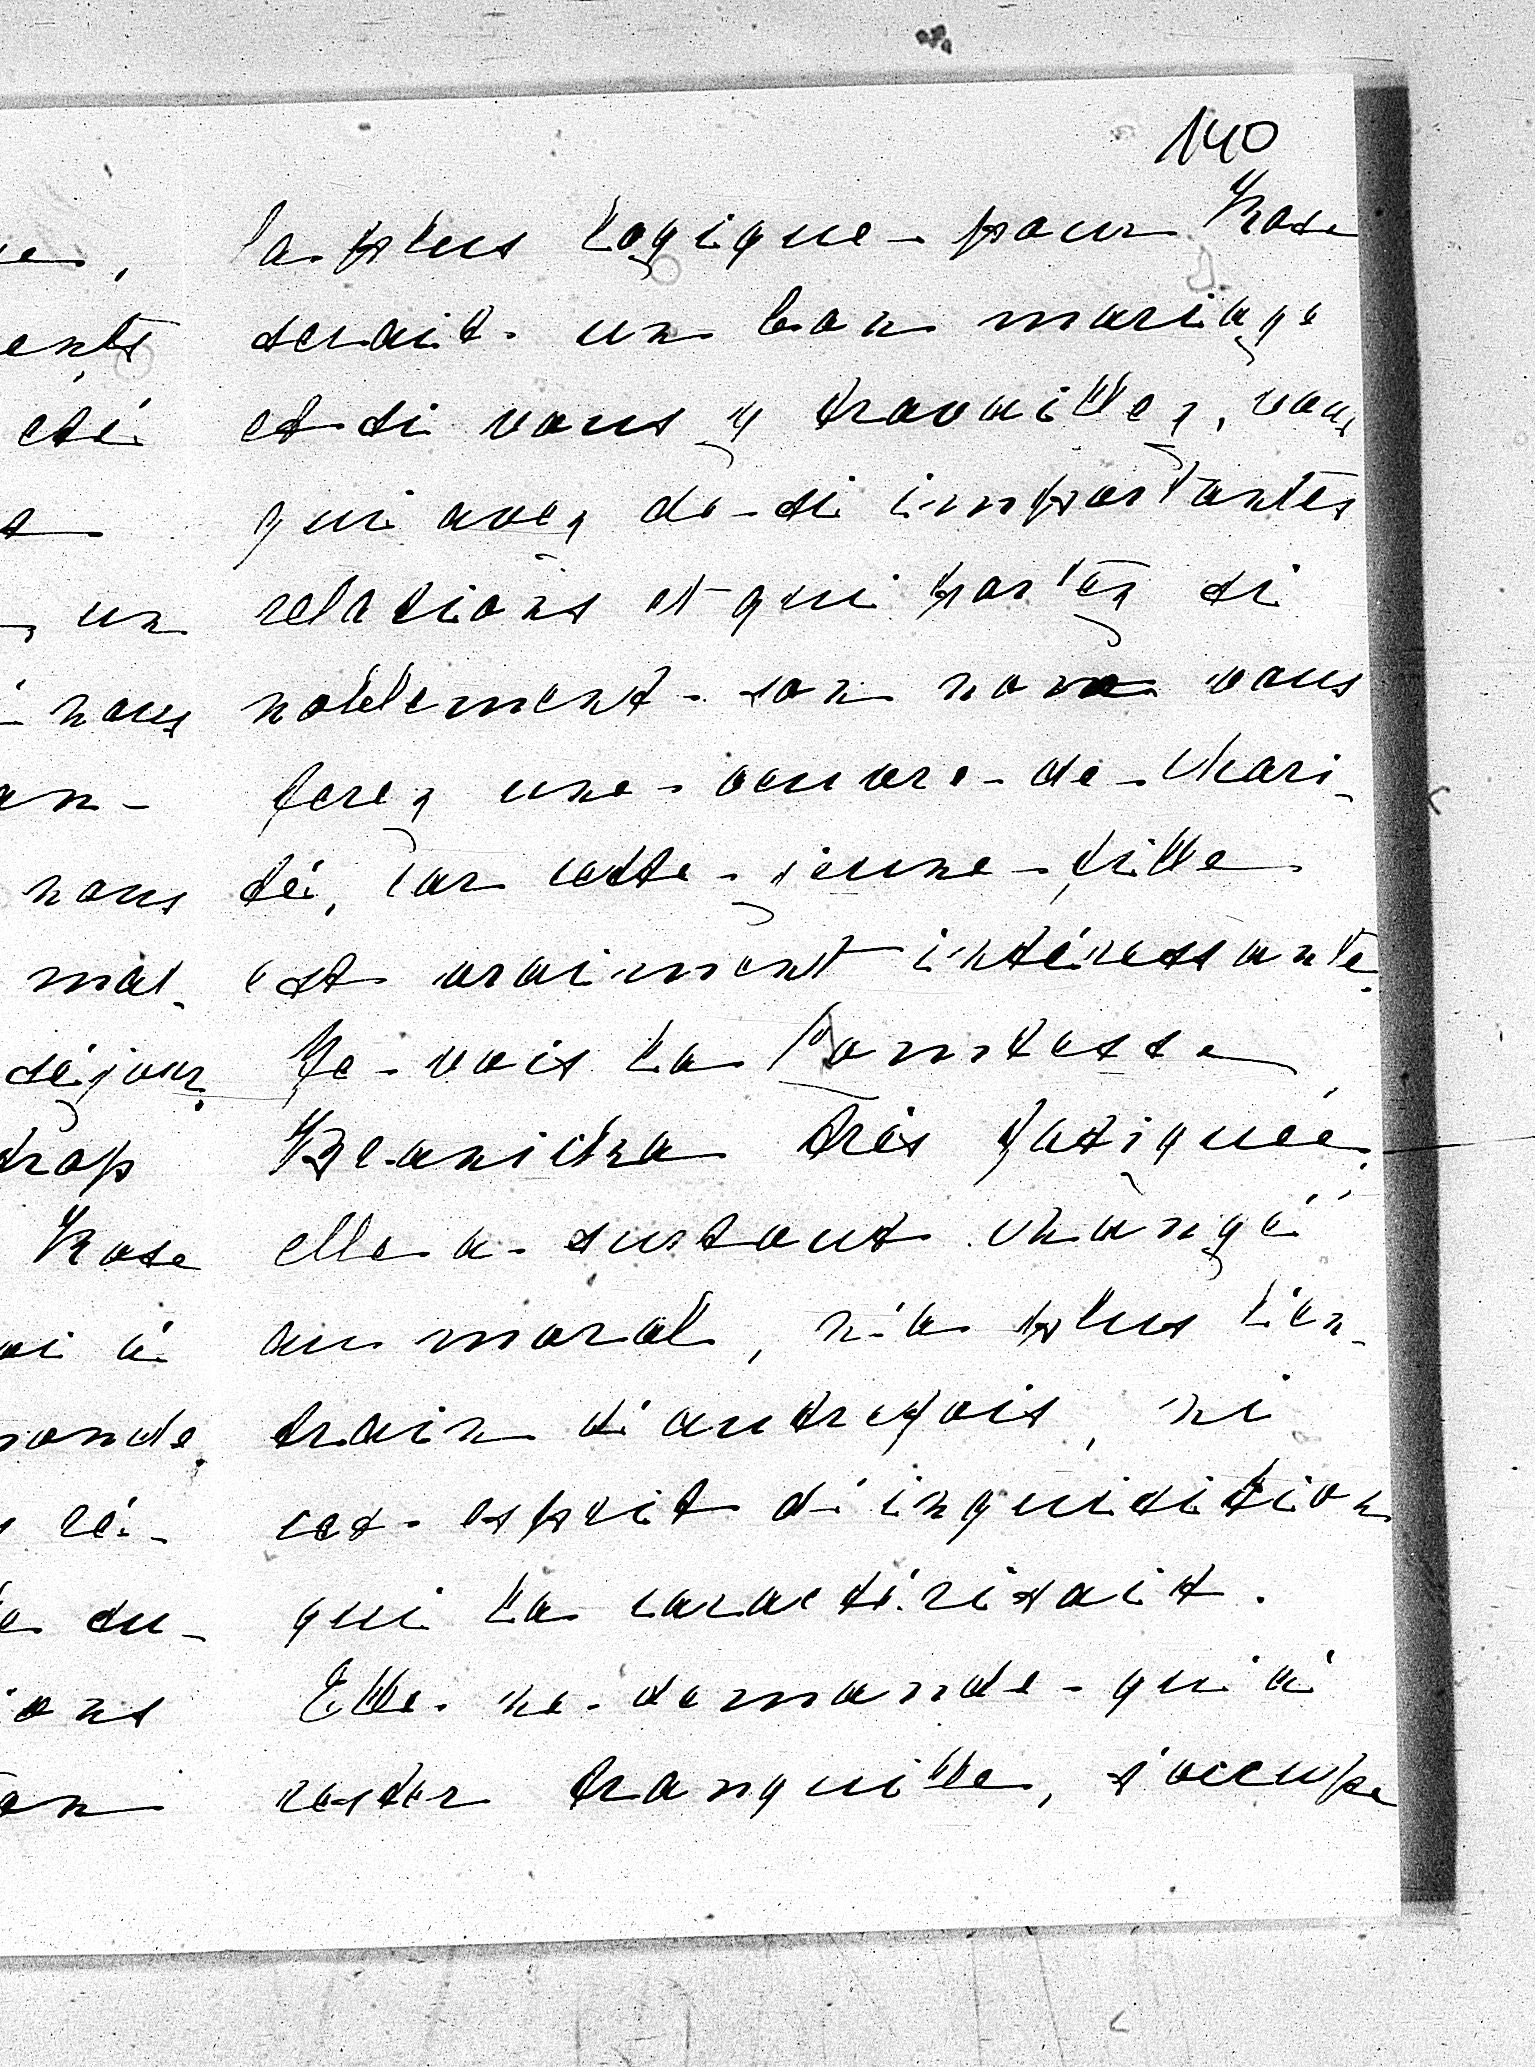 140
la plus logique pour Rose
serait un bon mariage
et si vous y travaillez, vous
qui avez de si importantes
relations et qui portez si
noblement son nom vous
ferez une oeuvre de chari-
té, car cette jeune fille
est vraiment intéressante.
Je vois la Comtesse
très fatiguée,
elle a surtout changé
au moral, n'a plus l'en-
train d'autrefois, ni
cet esprit d'inquisition
qui la caractérisait.
Elle ne demande qu'à
rester tranquille, s'occupe
ents
été
un
nous
an-
nous
mal-
séjour.
trop
Rose
oi à
monde.
ré-
su-
ions